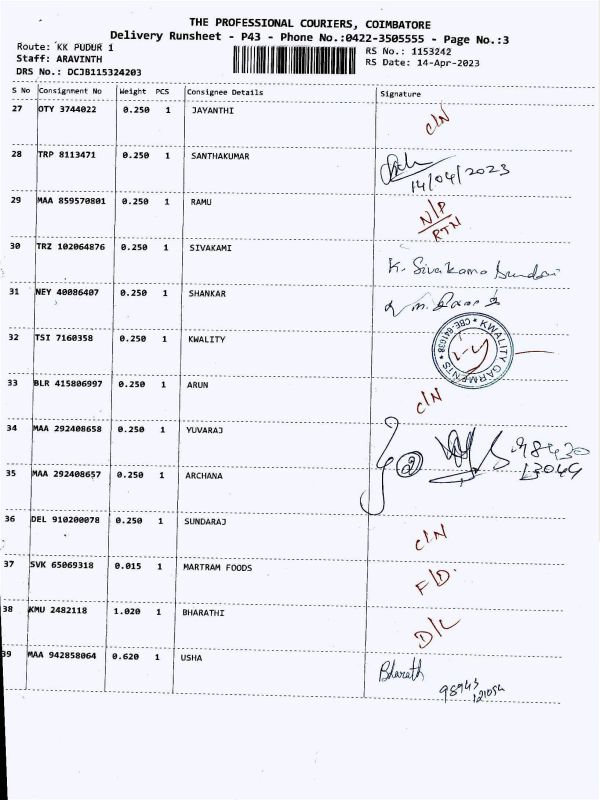 THE PROFESSIONAL COURIERS, COIMBATORE
Delivery Runsheet - P43 - Phone No.:0422-3505555 - Page No.:3
Route: KK PUDUR 1
RS No.: 1153242
Staff: ARAVINTH
RS Date: 14-Apr-2023
DRS No.: DCJB115324203
S No Consignment No Weight PCS Consignee Details Signature
27 OTY 3744022 0.250 1 JAYANTHI C/N
28 TRP 8113471 0.250 1 SANTHAKUMAR
14/04/2023
29 MAA 859570801 0.250 1 RAMU N/P
RTN
30 TRZ 102064876 0.250 1 SIVAKAMI
K. Sivakama Sundari
31 NEY 40086407 0.250 1 SHANKAR
32 TSI 7160358 0.250 1 KWALITY
KWALITY GARMENTS * CBE-641038 *
33 BLR 415806997 0.250 1 ARUN C/N
34 MAA 292408658 0.250 1 YUVARAJ
98430
13049
35 MAA 292408657 0.250 1 ARCHANA
36 DEL 910200078 0.250 1 SUNDARAJ C/N
37 SVK 65069318 0.015 1 MARTRAM FOODS F/D.
38 KMU 2482118 1.020 1 BHARATHI D/L
39 MAA 942858064 0.620 1 USHA
Bharath
98943
121054